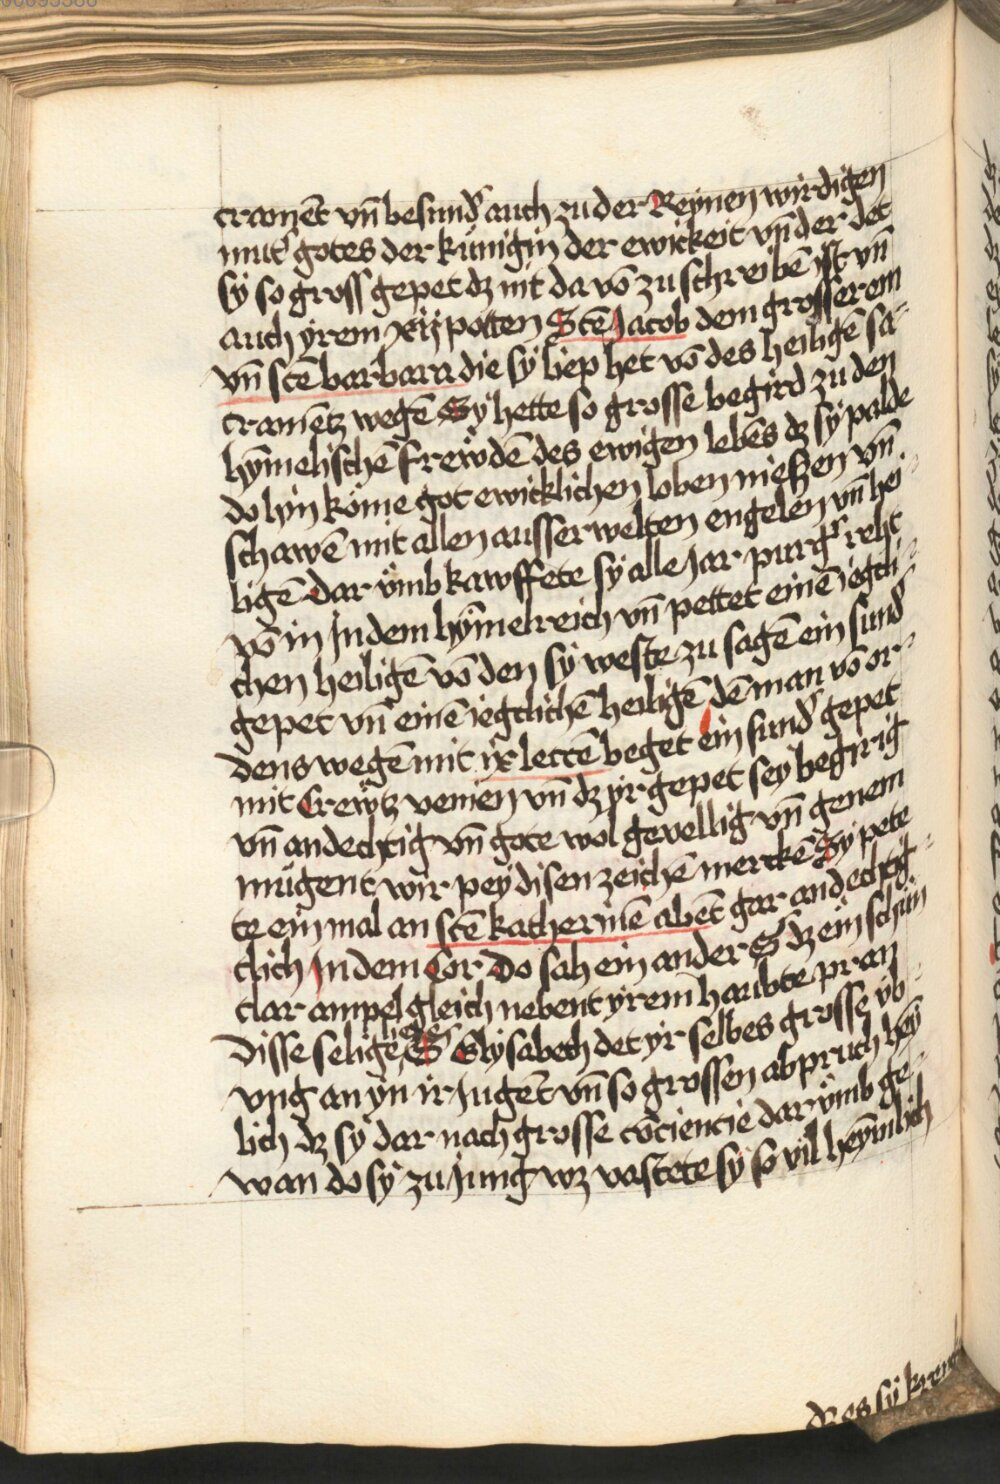 crament vn̄ besund͛ auch zu der Reynen wirdigen
mut͛ gotes der künigin der ewickeit vn̄ der det
sy so gross gepet dz nit da vō zu schreibē ist vn̄
auch yrem xij poten Scte Jacob dem grosserem
vn̄ sctē barbara die sy liep het vō des heiligē sa-
cramētz wegē Sy hette so grosse begird zu den
hȳmelischē frewdē des ewigen lebēs dz sy palde
do hin kōme got ewicklichen loben niessen vn̄
schawē mit allen ausserwelten engelen vn̄ hei-
ligē dar vmb kawffete sy alle Jar purg͛ reht
vō in Jn dem hȳmelreich vn̄ pettet einē iegcli-
chen heiligē vō den sy weste zu sagē ein sund͛
gepet vn̄ einē iegclichē heiligē dē man vō or-
dens wegē mit ix lectē beget ein sund͛ gepet
mit Crewtz venien vn̄ dz yr gepet sey begirig
vn̄ andechtig vn̄ gote wol gevellig vn̄ genem
mügent wir pey disen zeichē mercke Sy pete-
te ein mal an sctē katherinē abēt gar andechtig-
clich Jn dem Cor Do sah ein ander S dz ein schün
clar ampel gleich nebent yrem haubte pran
Disse selige S Elysabeth det yr selbes grosse vb-
vng an yn ir Jugēt vn̄ so grossen abpruch hey-
lich dz sy dar nach grosse cōciencie dar vmb ge-
wan do sy zu Jung wz vastete sy so vil heymlich
dz es sy